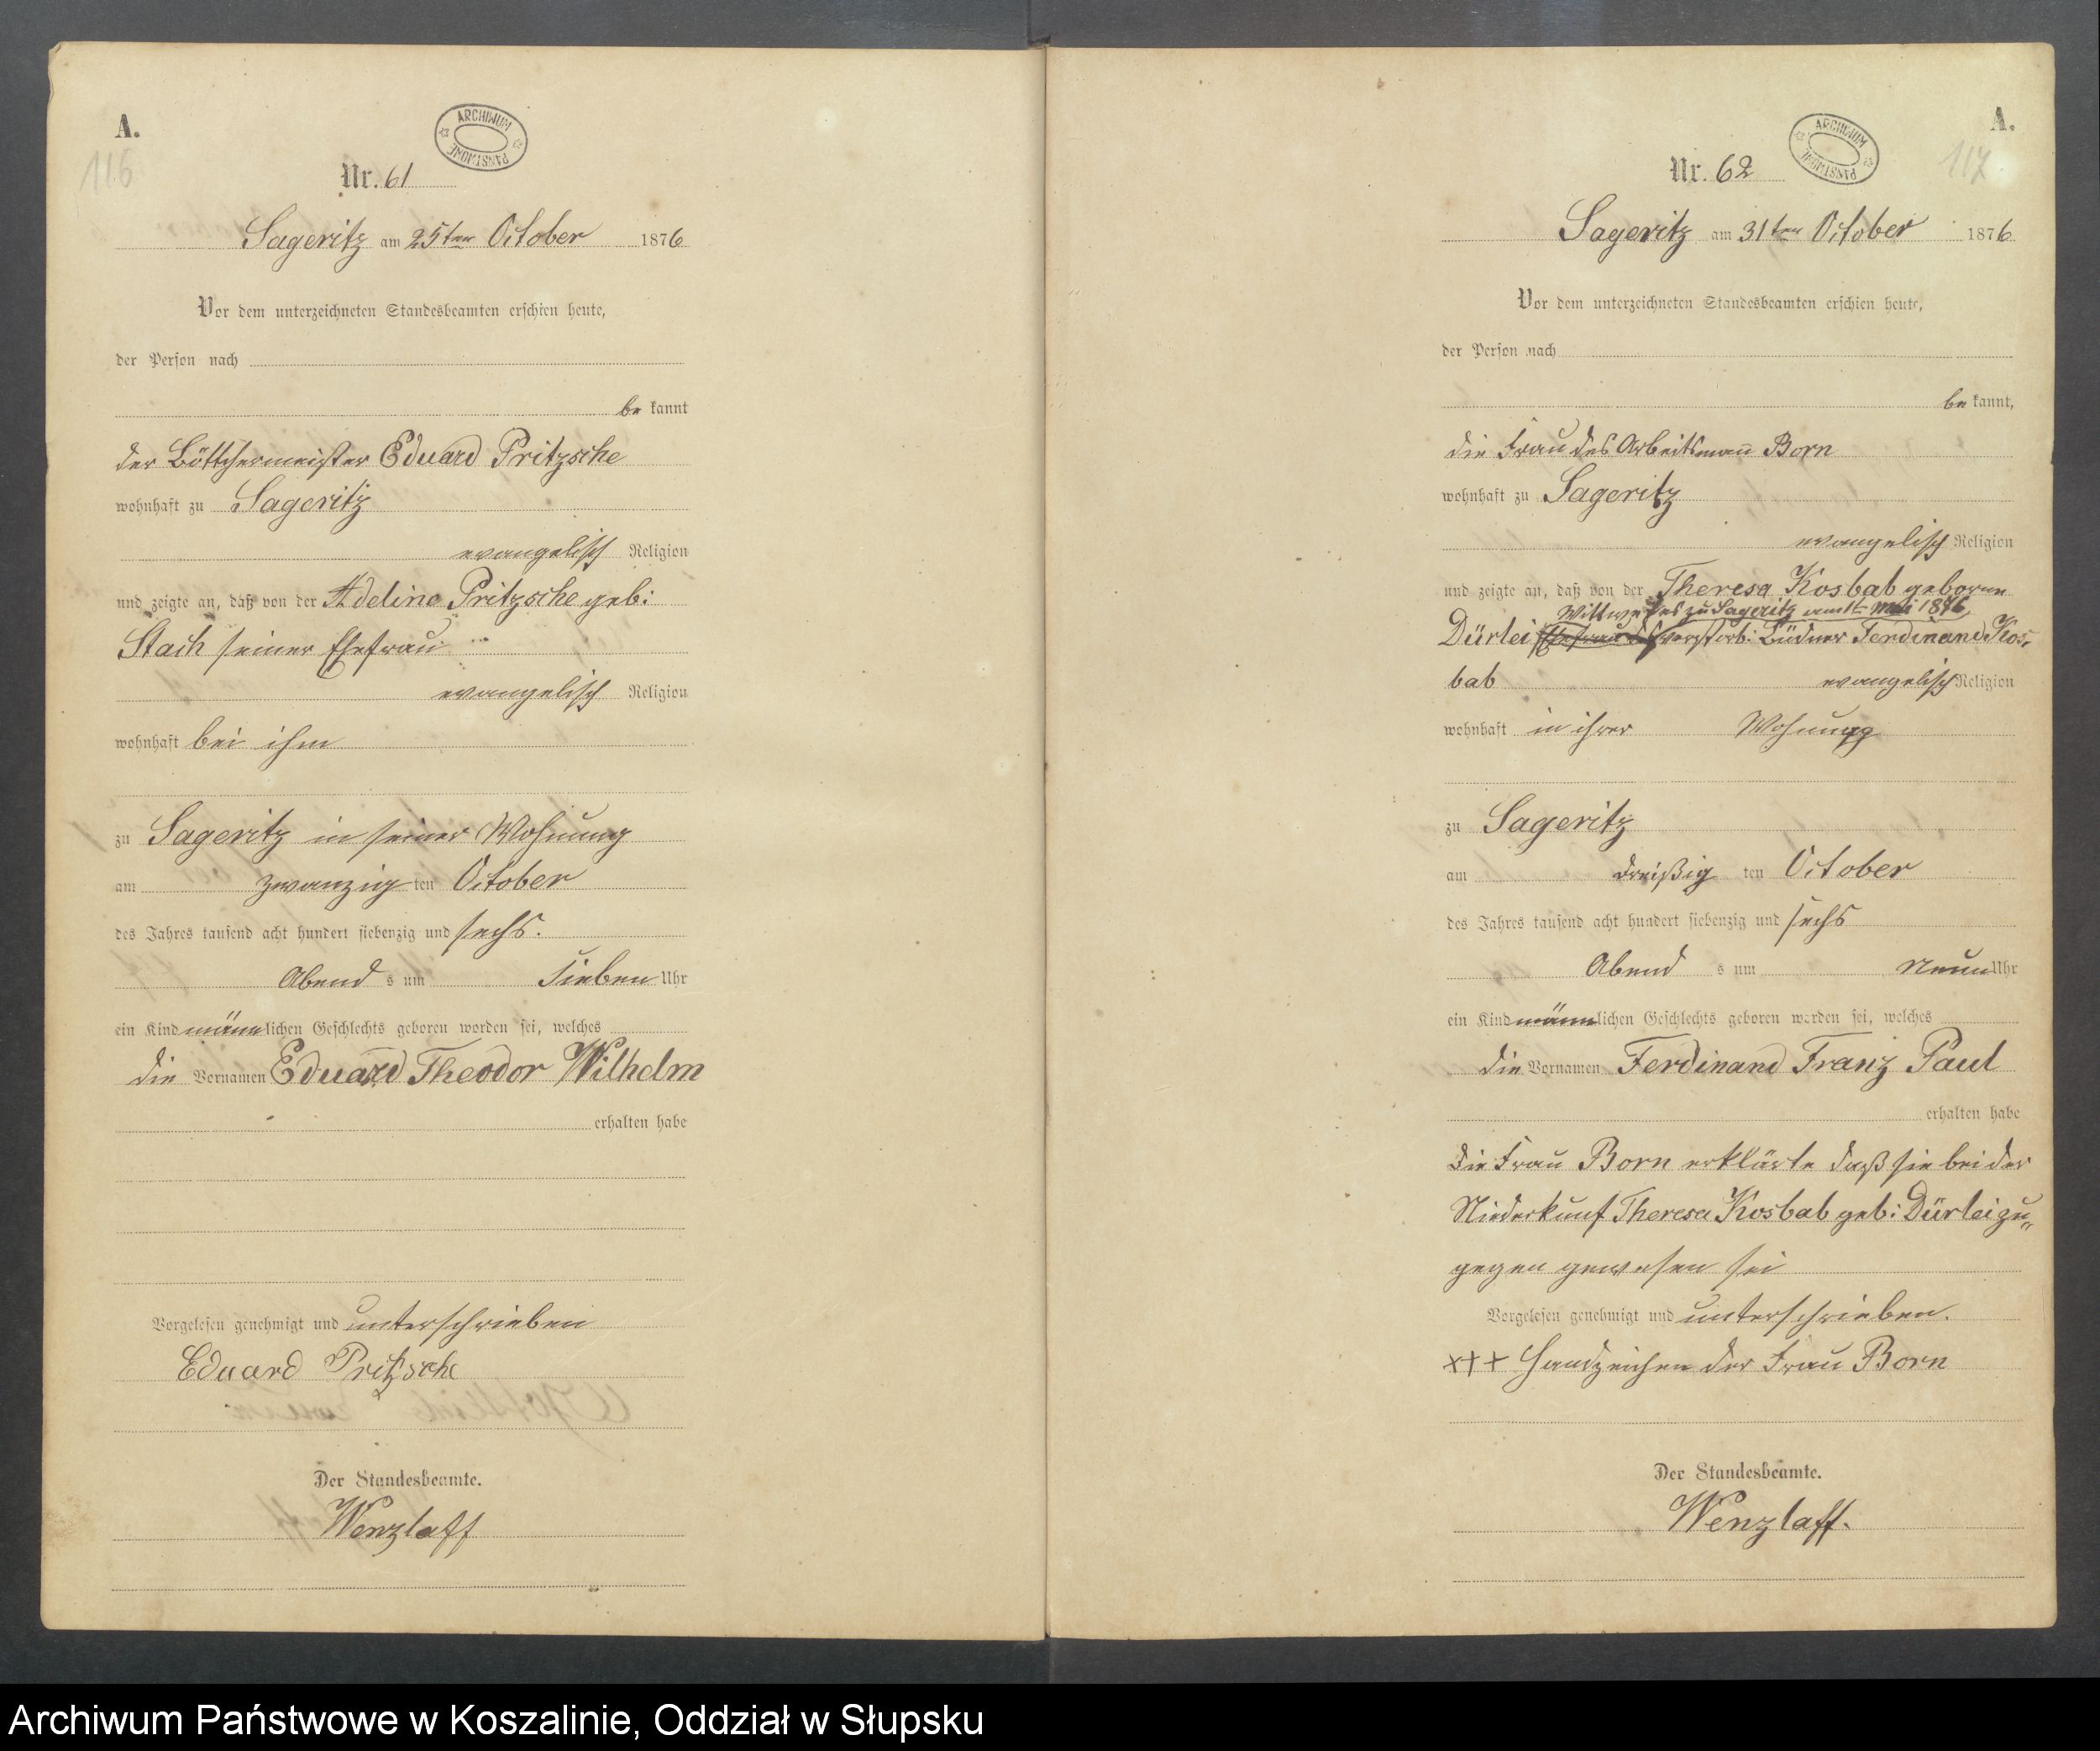 A.
116
ARCHIWUM PAŃSTWOWE
Nr. 61
Sageritz am 25ten October 1876
Vor dem unterzeichneten Standesbeamten erschien heute,
der Person nach
be kannt
der Böttchermeister Eduard Pritzsche
wohnhaft zu Sageritz
evangelisch Religion
und zeigte an, daß von der Adeline Pritzsche geb:
Stach seiner Ehefrau
evangelisch Religion
wohnhaft bei ihm
zu Sageritz in seiner Wohnung
am zwanzig ten October
des Jahres tausend acht hundert siebenzig und sechs.
Abend s um Sieben Uhr
ein Kind männlichen Geschlechts geboren worden sei, welches
die Vornamen Eduard Theodor Wilhelm
erhalten habe
Vorgelesen genehmigt und unterschrieben
Eduard Pritzsche
Der Standesbeamte.
Wenzlaff
A.
117
ARCHIWUM PAŃSTWOWE
Nr. 62
Sageritz am 31ten October 1876
Vor dem unterzeichneten Standesbeamten erschien heute,
der Person nach
be kannt,
die Frau des Arbeitsmañ Born
wohnhaft zu Sageritz
evangelisch Religion
und zeigte an, daß von der Theresa Kosbab geborne
Wittwe des zu Sageritz am Mai 1876
Dürlei Ehefrau des verstorb: Büdner Ferdinand Kos-
bab evangelisch Religion
wohnhaft in ihrer Wohnung
zu Sageritz
am dreißig ten October
des Jahres tausend acht hundert siebenzig und sechs
Abend s um Neun Uhr
ein Kind männlichen Geschlechts geboren worden sei, welches
die Vornamen Ferdinand Franz Paul
erhalten habe
die Frau Born erklärte daß sie bei der
Niederkunf Theresa Kosbab geb: Dürlei zu„
gegen gewesen sei
Vorgelesen genehmigt und unterschrieben.
+++ Handzeichen der Frau Born
Der Standesbeamte.
Wenzlaff.
Archiwum Państwowe w Koszalinie, Oddział w Słupsku